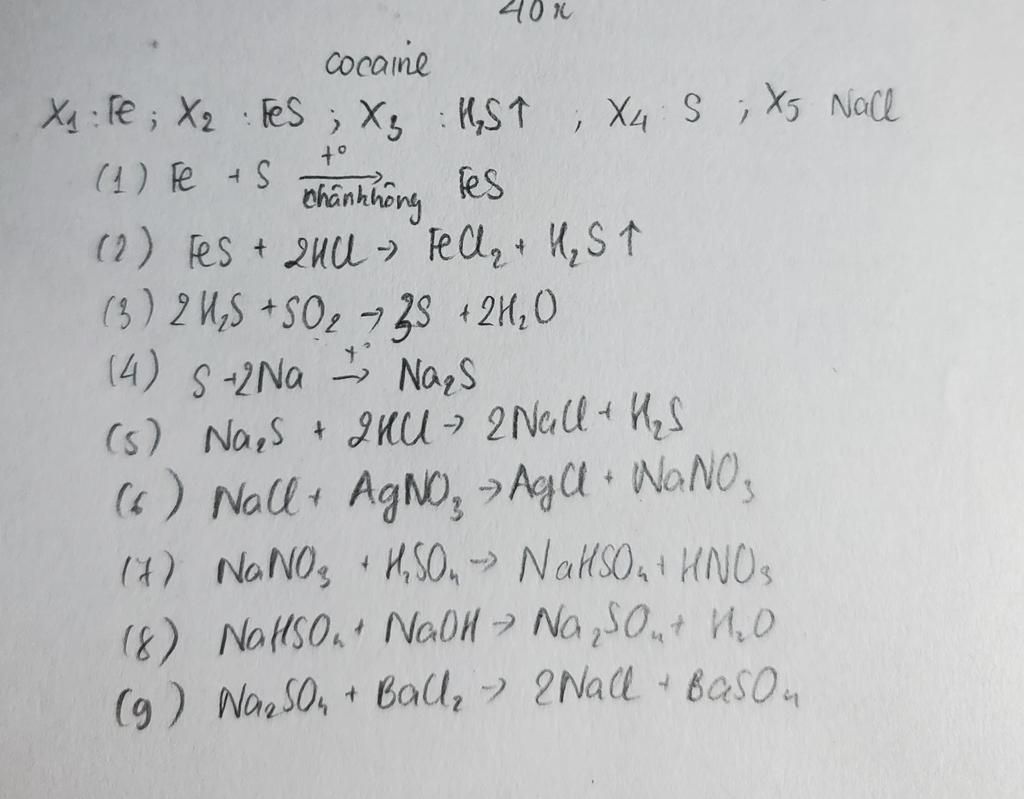 40x
cocaine
X₁ : Fe ; X₂ : FeS ; X₃ : H₂S↑ ; X₄ S ; X₅ NaCl
(1) Fe + S $\xrightarrow[\text{chânkhông}]{t°}$ FeS
(2) FeS + 2HCl → FeCl₂ + H₂S↑
(3) 2H₂S + SO₂ → 3S + 2H₂O
(4) S + 2Na $\xrightarrow{t°}$ Na₂S
(5) Na₂S + 2HCl → 2NaCl + H₂S
(6) NaCl + AgNO₃ → AgCl + NaNO₃
(7) NaNO₃ + H₂SO₄ → NaHSO₄ + HNO₃
(8) NaHSO₄ + NaOH → Na₂SO₄ + H₂O
(9) Na₂SO₄ + BaCl₂ → 2NaCl + BaSO₄